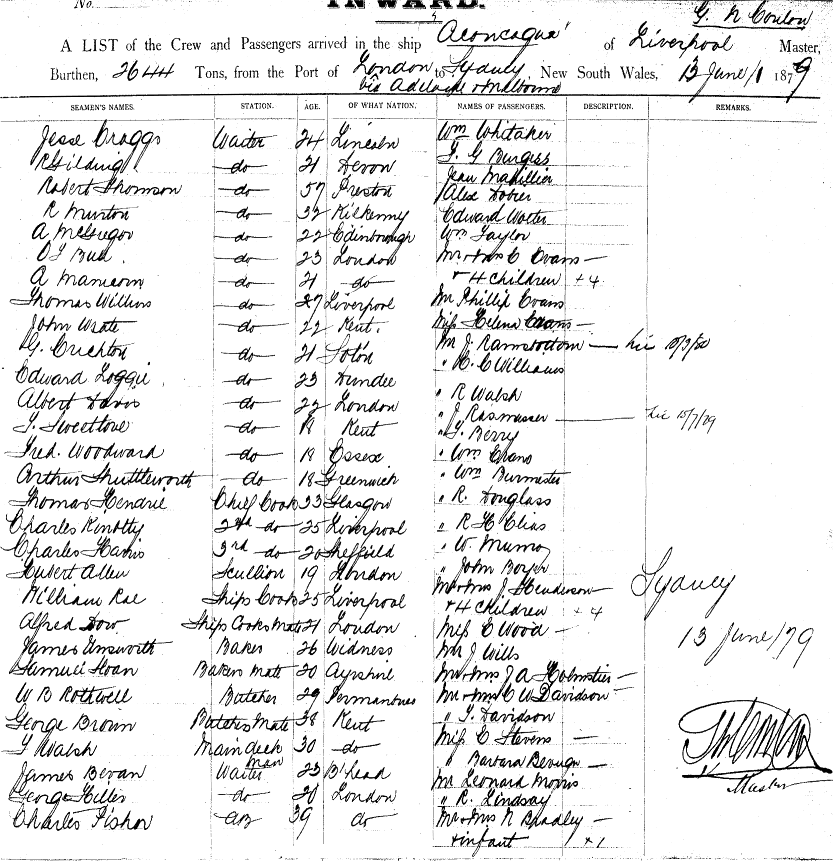 No.
INWARD.
G. N Conlan
A LIST of the Crew and Passengers arrived in the ship "Aconcagua" of Liverpool Master,
Burthen, 2644 Tons, from the Port of London to Sydney New South Wales, 13 June/ 1879
via Adelaide & Melbourne
SEAMEN'S NAMES. STATION. AGE. OF WHAT NATION. NAMES OF PASSENGERS. DESCRIPTION. REMARKS.
Jesse Craggs Waiter 24 Lincoln Wm Whitaker
R Gilding do 21 Devon J. G Burgess
Robert Thomson do 57 Preston Jean
R Munton do 32 Kilkenny Alex
A McGregor do 22 Edinborough Edward Walter
do 23 London Wm Taylor
A do 21 do Mr & Mrs C Evans —
+ 4 children + 4
Thomas Williams do 27 Liverpool Mr Phillip Evans
John Wrate do 22 Kent. Miss Helena Evans —
G. Crichton do 21 Soton Mr J. Ramsbottom —
Edward Loggie do 23 Dundee " H. C Williams
Albert Davis do 22 London " R Walsh
J. Sweetlove do 18 Kent " J Rasmusser — 10/7/79
Fred. Woodward do 18 Essex " J. Berry
Arthur Shuttleworth do 18 Greenwich " Wm Evans
Thomas Hendrie Chief Cook 33 Glasgow " Wm Burmester
Charles 2nd do 25 Liverpool " R. Douglass
Charles Harris 3rd do 20 Sheffield " R H Elias
Hubert Allen Scullion 19 London " W. Munro
William Rae Ships Cook 25 Liverpool " John Boyer
Alfred Dow Ships Cooks Mate 21 London Mr & Mrs J Henderson —
+ 4 children + 4
James Unsworth Baker 26 Widness Miss C Wood —
Samuel Sloan Bakers Mate 20 Ayrshire Mr J Wills
W B Rothwell Butcher 29 Mr & Mrs J A Holmstier —
George Brown Butchers Mate 38 Kent Mr & Mrs C W Davidson —
J Walsh Main deck man 30 do " J. Davidson
James Bevan Waiter 23 B'head Miss C Stevens —
George Hiller do 20 London " Barbara —
Charles Fisher AB 39 do Mr Leonard Morris
" R. Lindsay
Mr & Mrs N Bradley —
+ infant + 1
Sydney
13 June/79
Master